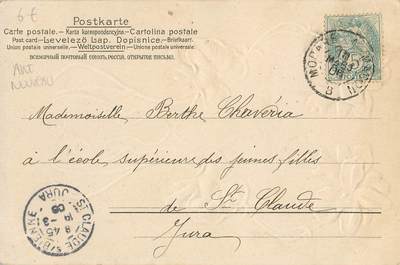 6 €
Art
Nouveau
Postkarte
Carte postale. — Karta korespondencyjna. — Cartolina postale
Post card — Levelező Lap. Dopisnice. — Briefkaart.
Union postale universelle. — Weltpostverein — Unione postale universale.
ВСЕМІРНЫЙ ПОЧТОВЫЙ СОЮЗЪ. РОССІЯ. ОТКРЫТОЕ ПИСЬМО.
Mademoiselle Berthe Chavéria
à l'école supérieure des jeunes filles
de St Claude
Jura
ST CLAUDE S/BIENNE
8 45
14 -3
05
JURA